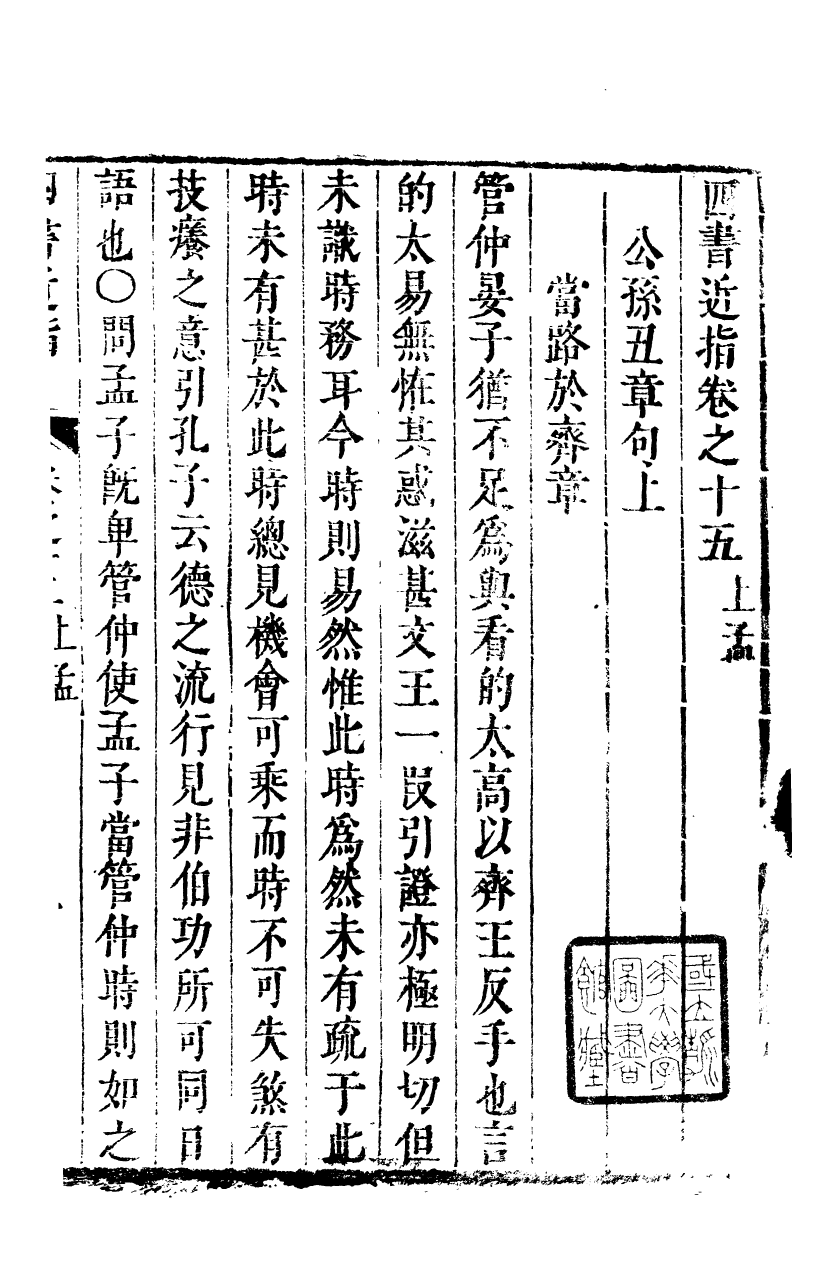 四書近指卷之十五 上孟
公孫丑章句上
當路於齊章
管仲晏子猶不足爲與看的太高以齊王反手也言
的太易無怪其惑滋甚文王一段引證亦極明切但
未識時務耳今時則易然惟此時爲然未有疏于此
時未有甚於此時總見機會可乘而時不可失煞有
技癢之意引孔子云德之流行見非伯功所可同日
語也〇問孟子旣卑管仲使孟子當管仲時則如之
四書近指
卷之十五上孟
國立清華大學圖書館藏